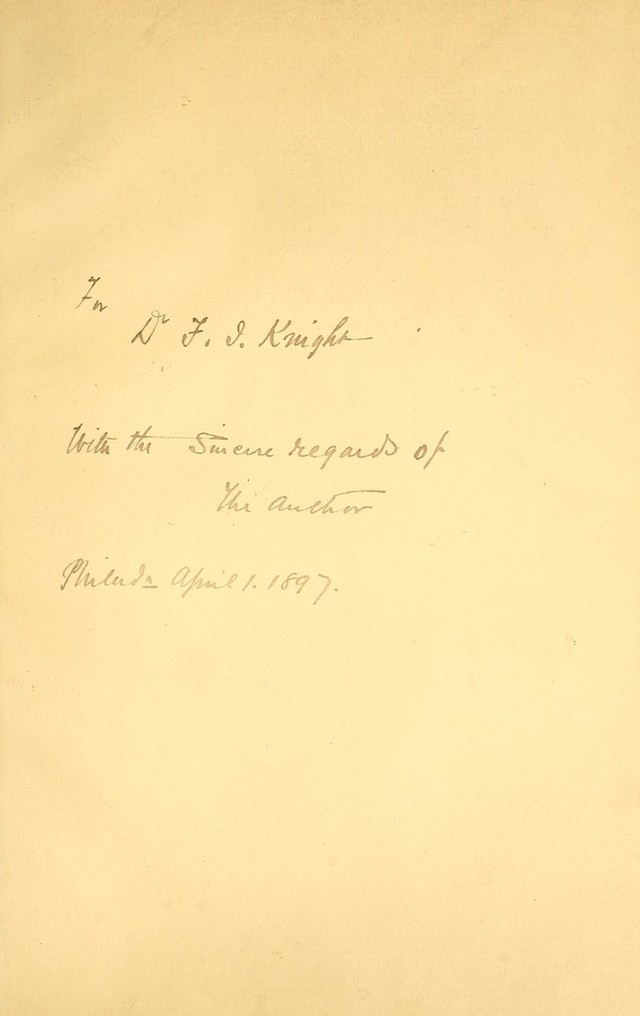 For
Dr F. I. Knight
With the Sincere regards of
The Author
Philada April 1. 1897.